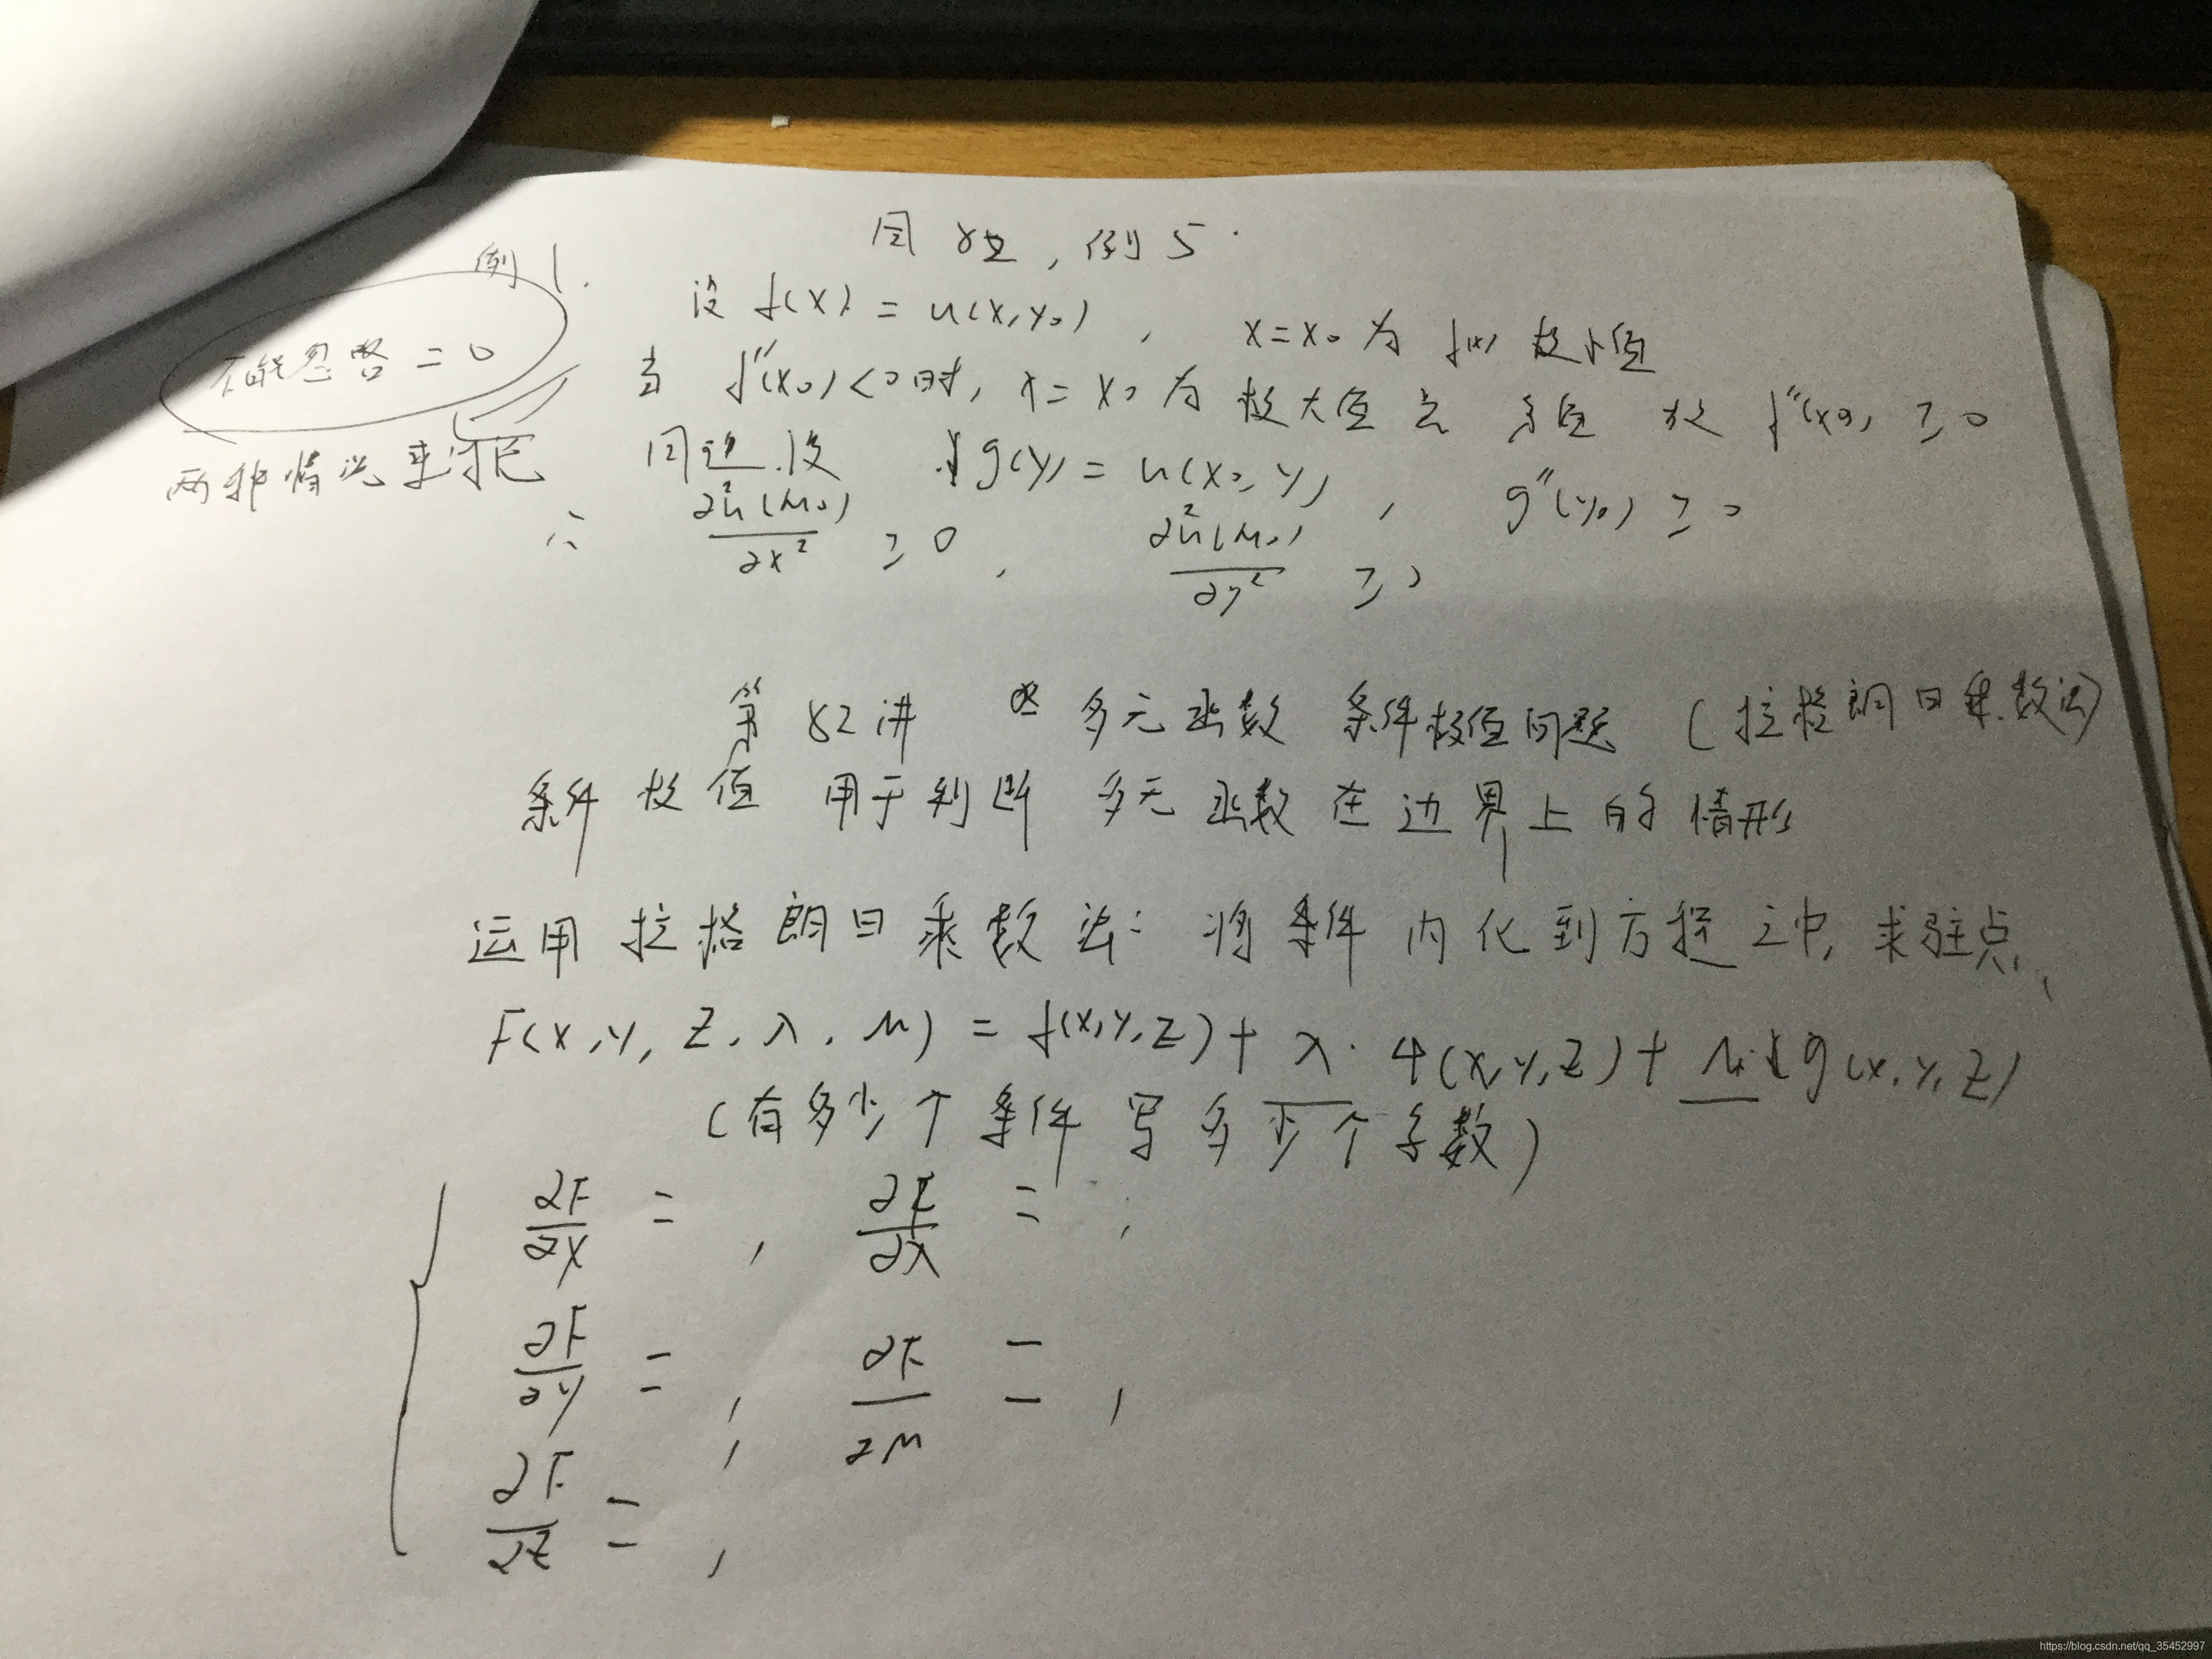 例5.
例1.
设 f(x) = u(x,y₀), x=x₀ 为 f(x) 极小值
不能忽略=0
当 f''(x₀)<0时, x=x₀ 为极大值 矛盾 故 f''(x₀) ≥0
两种情况来讨论
同边设 g(y) = u(x₀,y), g''(y₀) ≥0
∴ ∂²u(M₀)/∂x² ≥0, ∂²u(M₀)/∂y² ≥0
第82讲 多元函数 条件极值问题 (拉格朗日乘数法)
条件极值 用于判断 多元函数在边界上的情形
运用拉格朗日乘数法: 将条件内化到方程之中, 求驻点,
F(x,y,z,λ,μ) = f(x,y,z)+ λ·φ(x,y,z)+ μ·g(x,y,z)
(有多少个条件写多少个子数)
∂F/∂x = , ∂F/∂λ = ,
∂F/∂y = , ∂F/∂μ = ,
∂F/∂z = ,
https://blog.csdn.net/qq_35452997